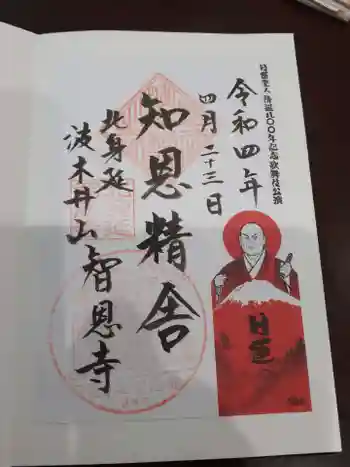 日蓮聖人降誕八〇〇年記念歌舞伎公演
令和四年
四月二十三日
知恩精舎
北身延
波木井山智恩寺
日蓮